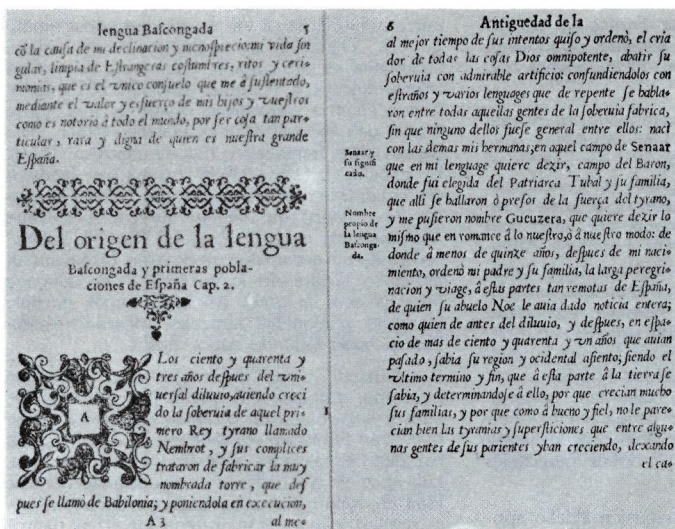 lengua Baſcongada 5
cõ la cauſa de mi declinacion y menoſprecio: mi vida ſin
gular, limpia de Eſtrangeras coſtumbres, ritos y ceri-
monias, que es el vnico conſuelo que me à ſuſtentado,
mediante el valor y esfuerço de mis hijos y vueſtros
como es notorio à todo el mundo, por ſer coſa tan par-
ticular, rara y digna de quien es nueſtra grande
Eſpaña.
Del origen de la lengua
Baſcongada y primeras pobla-
ciones de Eſpaña Cap. 2.
A Los ciento y quarenta y
tres años deſpues del vni-
uerſal diluuio, auiendo creci
do la ſoberuia de aquel pri-
mero Rey tyrano llamado
Nembrot, y ſus complices
trataron de fabricar la muy
nombrada torre, que deſ
pues ſe llamò de Babilonia; y poniendola en execucion,
A 3 al me-
6 Antiguedad de la
al mejor tiempo de ſus intentos quiſo y ordenò, el cria
dor de todas las coſas Dios omnipotente, abatir ſu
ſoberuia con admirable artificio: confundiendolos con
eſtraños y varios lenguages que de repente ſe habla-
ron entre todas aquellas gentes de la ſoberuia fabrica,
ſin que ninguno dellos fueſe general entre ellos: naci
con las demas mis hermanas; en aquel campo de Senaar
Senaar y
ſu ſignifi
cado.
que en mi lenguage quiere dezir, campo del Baron,
donde fui elegida del Patriarca Tubal y ſu familia,
que alli ſe ballaron ò preſos de la fuerça del tyrano,
Nombre
propio de
la lengua
Baſconga-
da.
y me puſieron nombre Gueuzera, que quiere dezir lo
miſmo que en romance à lo nueſtro, ò à nueſtro modo: de
donde à menos de quinze años, deſpues de mi naci-
miento, ordenò mi padre y ſu familia, la larga peregri-
nacion y viage, â eſtas partes tan remotas de Eſpaña,
de quien ſu abuelo Noe le auia dado noticia entera;
como quien de antes del diluuio, y deſpues, en eſpa-
cio de mas de ciento y quarenta y vn años que auian
paſado, ſabia ſu region y ocidental aſiento; ſiendo el
vltimo termino y fin, que â eſta parte â la tierra ſe
ſabia, y determinandoſe â ello, por que crecian mucho
ſus familias, y por que como â bueno y fiel, no le pare-
cian bien las tyranias y ſuperſticiones que entre algu-
nas gentes de ſus parientes yban creciendo, dexando
el ca-